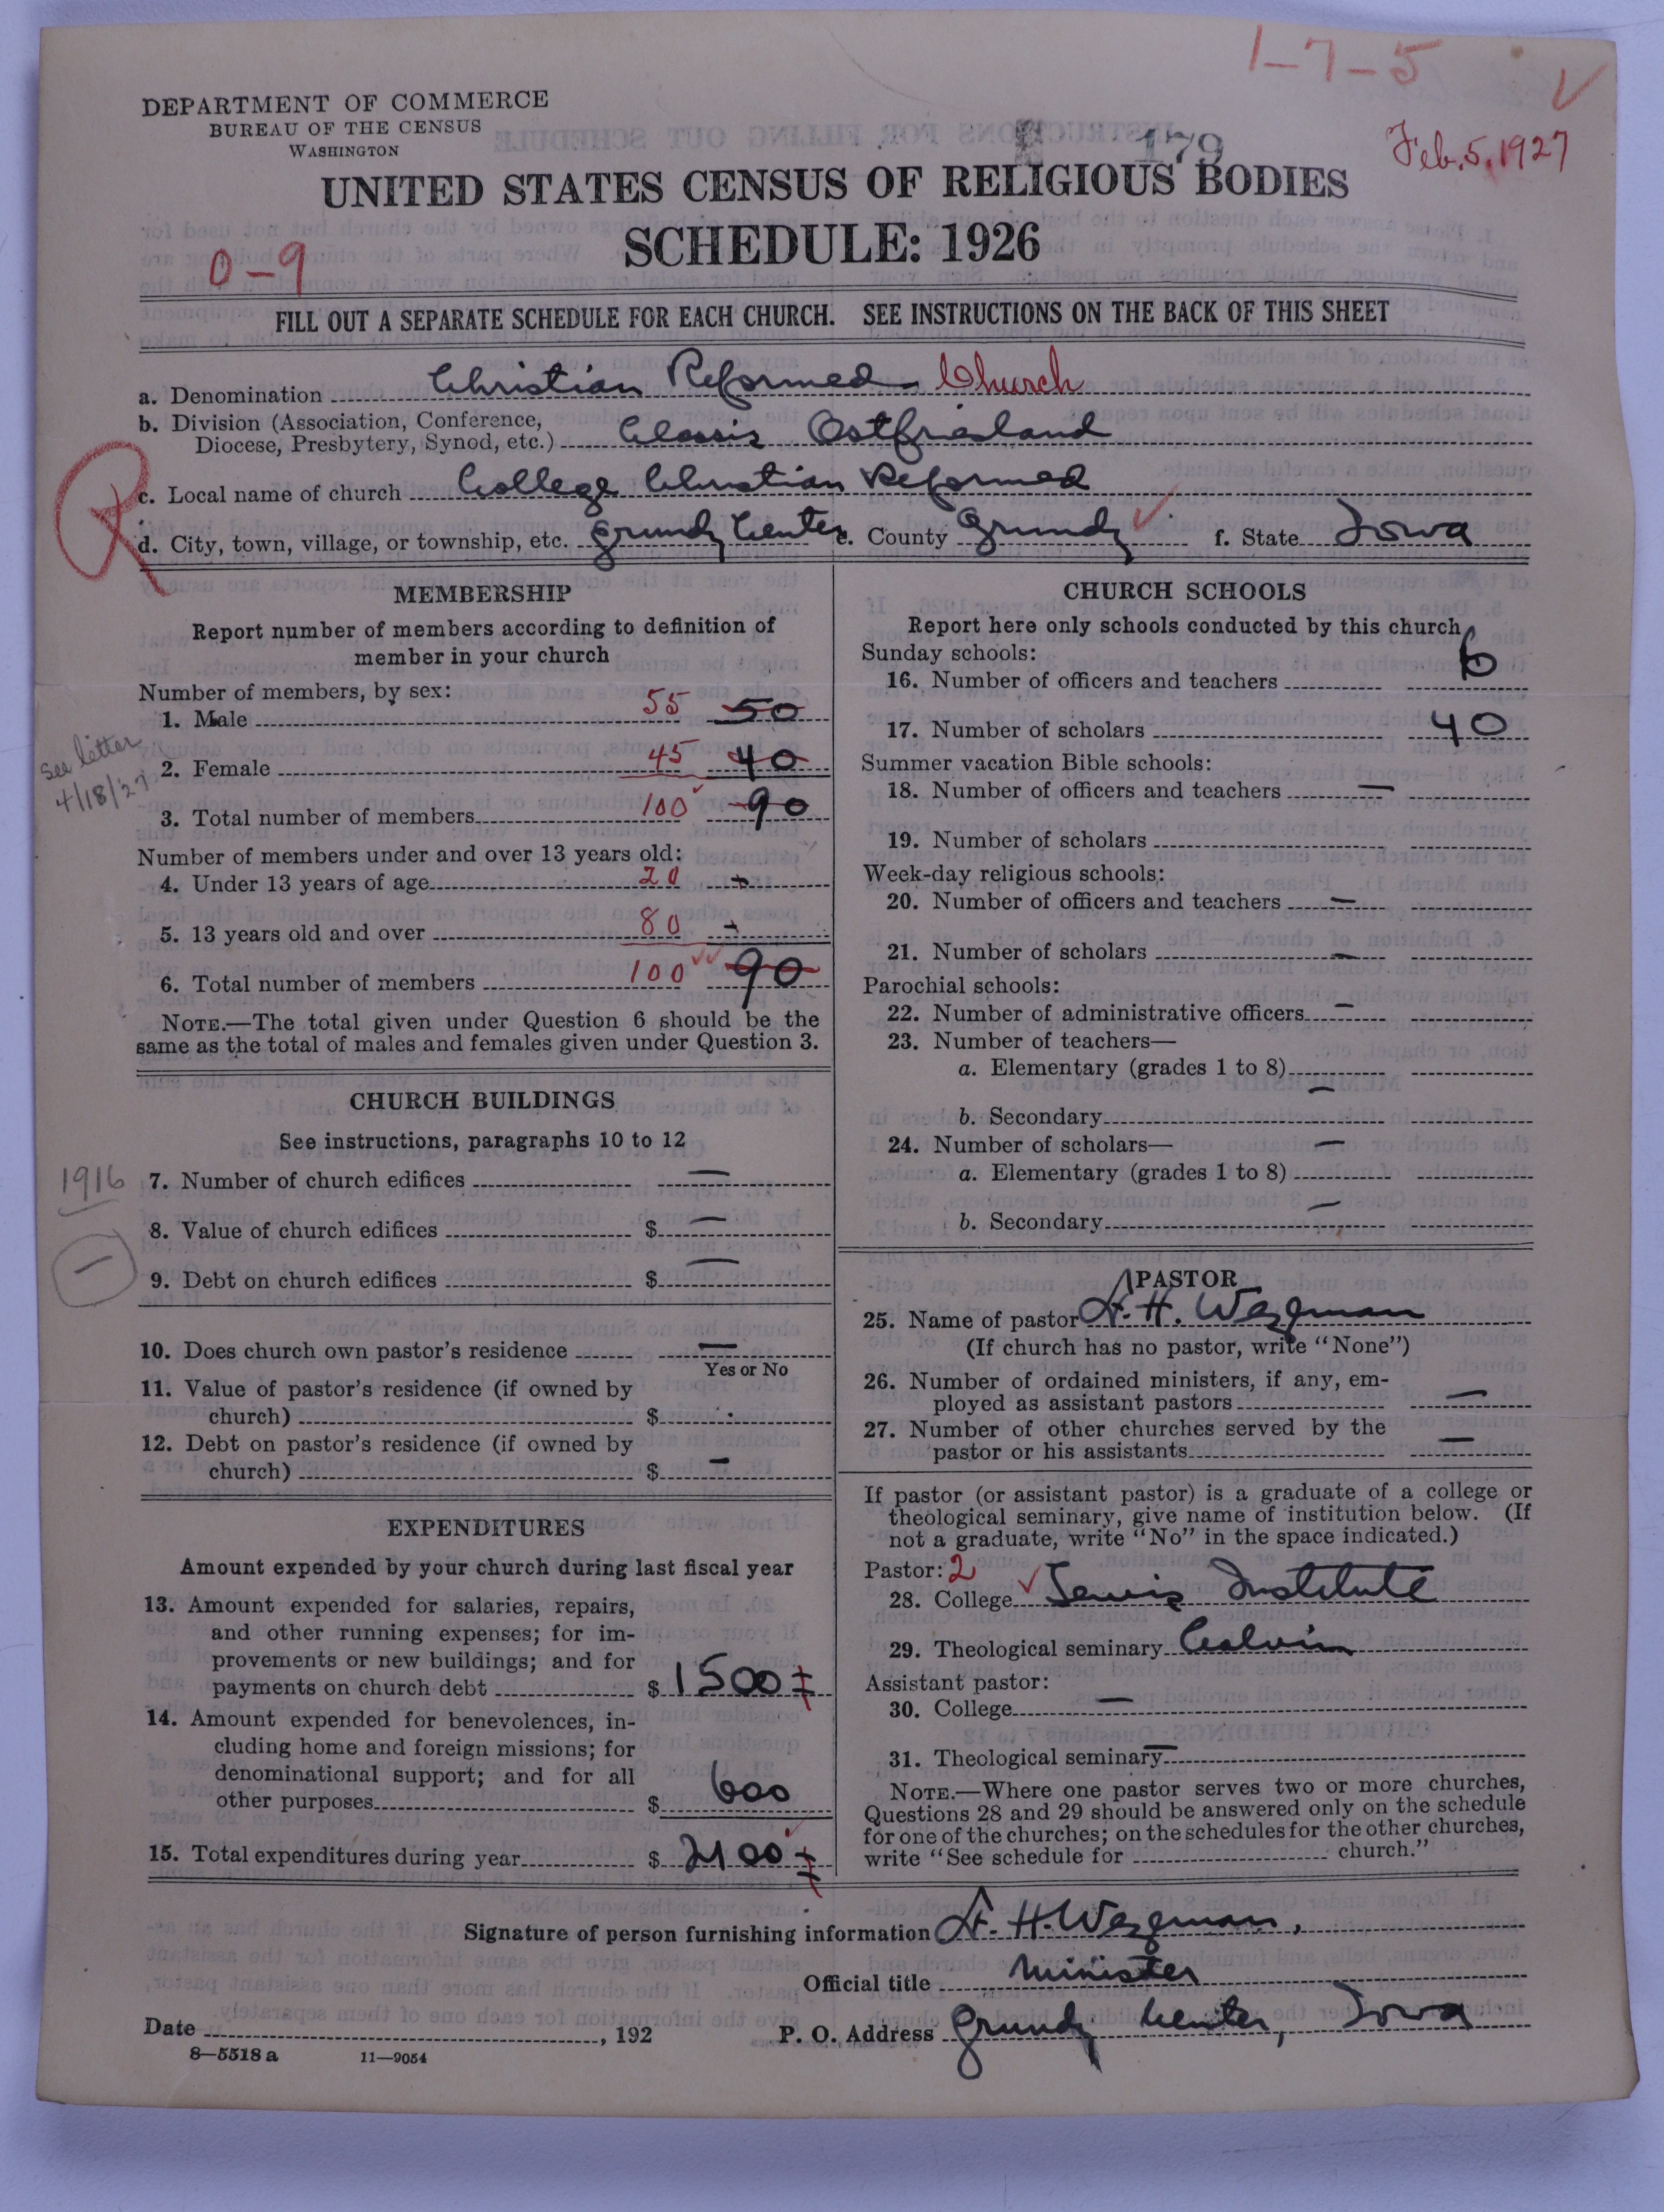 1-7-5
DEPARTMENT OF COMMERCE
BUREAU OF THE CENSUS
WASHINGTON
179
Feb. 5, 1927
UNITED STATES CENSUS OF RELIGIOUS BODIES
SCHEDULE: 1926
0-9
FILL OUT A SEPARATE SCHEDULE FOR EACH CHURCH. SEE INSTRUCTIONS ON THE BACK OF THIS SHEET
a. Denomination Christian Reformed Church
b. Division (Association, Conference,
Diocese, Presbytery, Synod, etc.) Classis Ostfriesland
R
c. Local name of church College Christian Reformed
d. City, town, village, or township, etc. Grundy Center e. County Grundy f. State Iowa
MEMBERSHIP
Report number of members according to definition of
member in your church
Number of members, by sex:
1. Male 55 50
See letter 4/18/27
2. Female 45 40
3. Total number of members 100 90
Number of members under and over 13 years old:
4. Under 13 years of age 20 -
5. 13 years old and over 80 -
6. Total number of members 100 90
NOTE.—The total given under Question 6 should be the
same as the total of males and females given under Question 3.
CHURCH BUILDINGS
See instructions, paragraphs 10 to 12
1916
7. Number of church edifices —
8. Value of church edifices $ —
9. Debt on church edifices $ —
10. Does church own pastor's residence —
Yes or No
11. Value of pastor's residence (if owned by
church) $
12. Debt on pastor's residence (if owned by
church) $ -
EXPENDITURES
Amount expended by your church during last fiscal year
13. Amount expended for salaries, repairs,
and other running expenses; for im-
provements or new buildings; and for
payments on church debt $ 1500 ±
14. Amount expended for benevolences, in-
cluding home and foreign missions; for
denominational support; and for all
other purposes $ 600
15. Total expenditures during year $ 2100 ±
CHURCH SCHOOLS
Report here only schools conducted by this church
Sunday schools:
16. Number of officers and teachers 6
17. Number of scholars 40
Summer vacation Bible schools:
18. Number of officers and teachers —
19. Number of scholars
Week-day religious schools:
20. Number of officers and teachers —
21. Number of scholars —
Parochial schools:
22. Number of administrative officers —
23. Number of teachers—
a. Elementary (grades 1 to 8) —
b. Secondary
24. Number of scholars— —
a. Elementary (grades 1 to 8)
b. Secondary —
PASTOR
25. Name of pastor H. Wezeman
(If church has no pastor, write "None")
26. Number of ordained ministers, if any, em-
ployed as assistant pastors —
27. Number of other churches served by the
pastor or his assistants —
If pastor (or assistant pastor) is a graduate of a college or
theological seminary, give name of institution below. (If
not a graduate, write "No" in the space indicated.)
Pastor: 2
28. College Lewis Institute
29. Theological seminary Calvin
Assistant pastor:
30. College —
31. Theological seminary —
NOTE.—Where one pastor serves two or more churches,
Questions 28 and 29 should be answered only on the schedule
for one of the churches; on the schedules for the other churches,
write "See schedule for church."
Signature of person furnishing information H. Wezeman,
Official title Minister
Date , 192 P. O. Address Grundy Center, Iowa
8—5518 a 11—9054